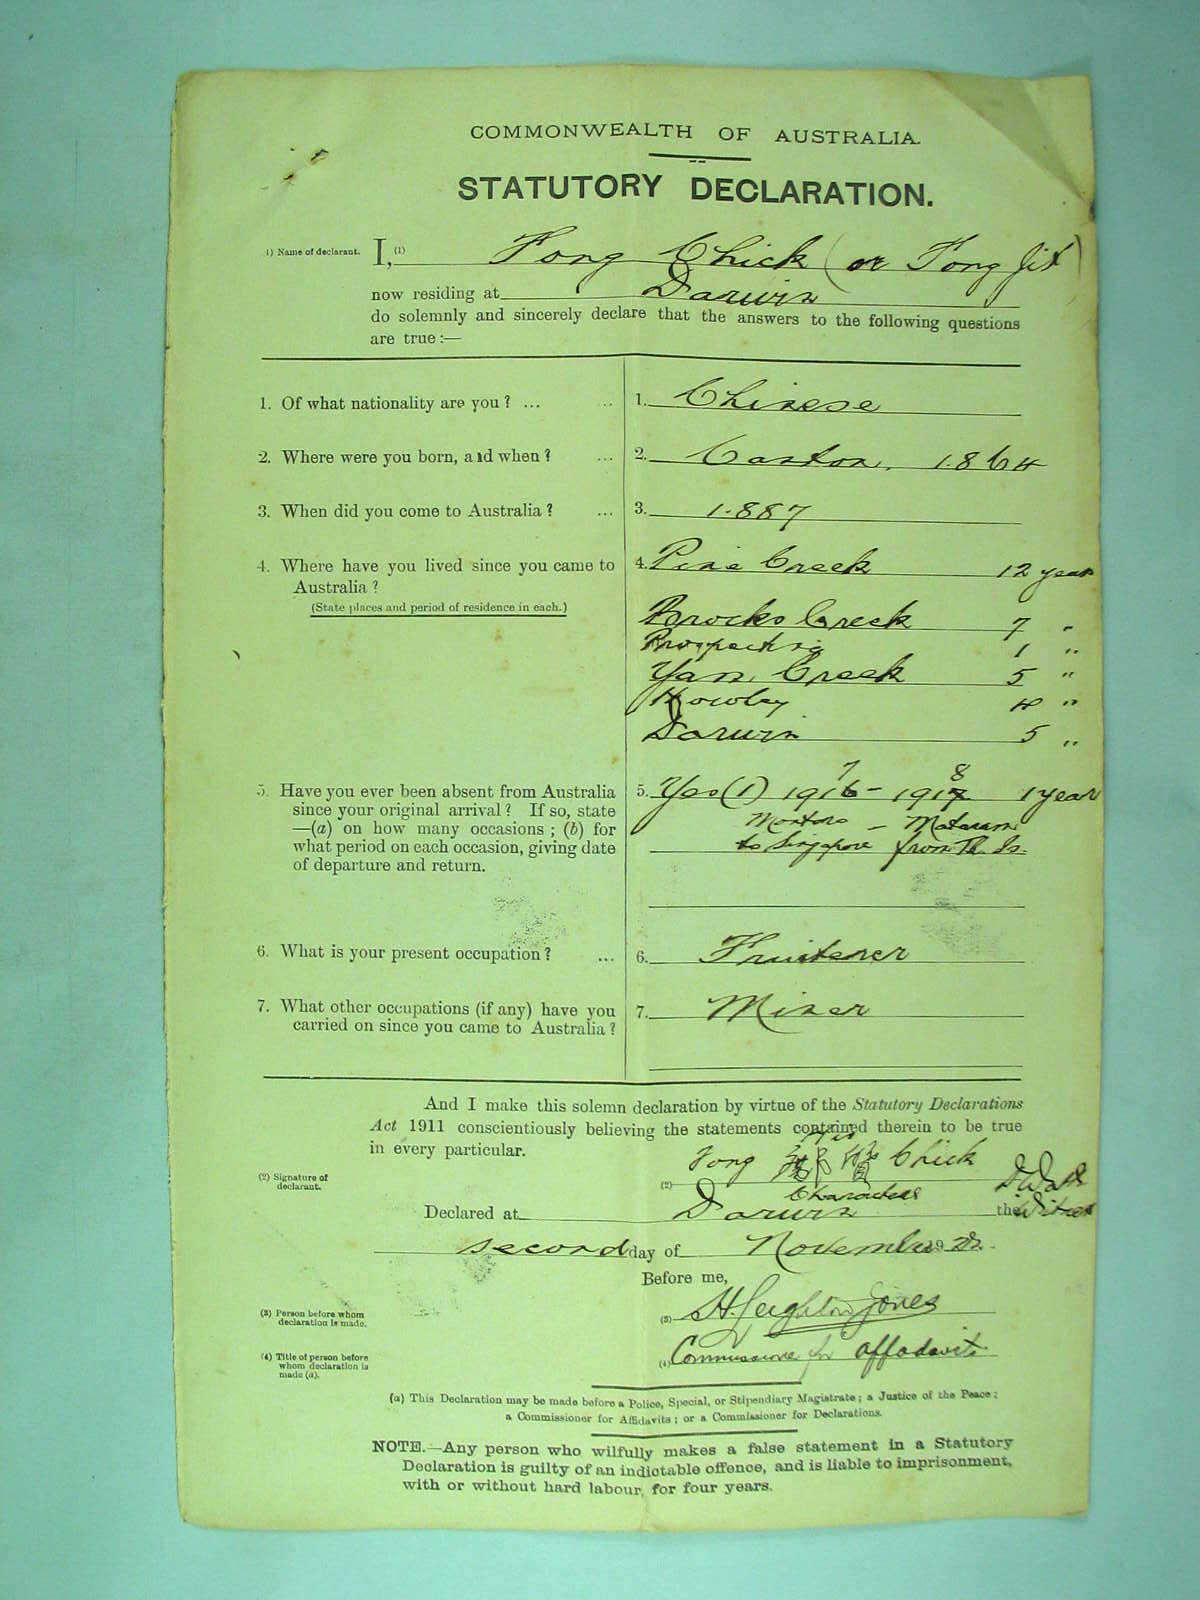 COMMONWEALTH OF AUSTRALIA.
STATUTORY DECLARATION.
1) Name of declarant. I, (1) Fong Chick (or Fong Jit)
now residing at Darwin
do solemnly and sincerely declare that the answers to the following questions
are true:—
1. Of what nationality are you? ... ... 1. Chinese
2. Where were you born, and when? ... 2. Canton. 1864
3. When did you come to Australia? ... 3. 1887
4. Where have you lived since you came to 4. Pine Creek 12 years
Australia?
(State places and period of residence in each.)
Brocks Creek 7 "
Prospecting 1 "
Yam Creek 5 "
Howley 4 "
Darwin 5 "
7 8
5. Have you ever been absent from Australia 5. Yes (1) 1916 - 1917 1 year
since your original arrival? If so, state
Montoro - Mataram
—(a) on how many occasions; (b) for
what period on each occasion, giving date to Singapore from Th. Is.
of departure and return.
6. What is your present occupation? ... 6. Fruiterer
7. What other occupations (if any) have you 7. Miner
carried on since you came to Australia?
And I make this solemn declaration by virtue of the Statutory Declarations
Act 1911 conscientiously believing the statements contained therein to be true
in every particular.
his
(2) Signature of declarant. (2) Fong Chick
Characters
Witness
Declared at Darwin the
second day of November 19
Before me,
(3) Person before whom declaration is made. (3) H. Leighton Jones
(4) Title of person before whom declaration is made (a). (4) Commissioner for affadavits
(a) This Declaration may be made before a Police, Special, or Stipendiary Magistrate; a Justice of the Peace;
a Commissioner for Affidavits; or a Commissioner for Declarations.
NOTE.—Any person who wilfully makes a false statement in a Statutory
Declaration is guilty of an indictable offence, and is liable to imprisonment,
with or without hard labour, for four years.